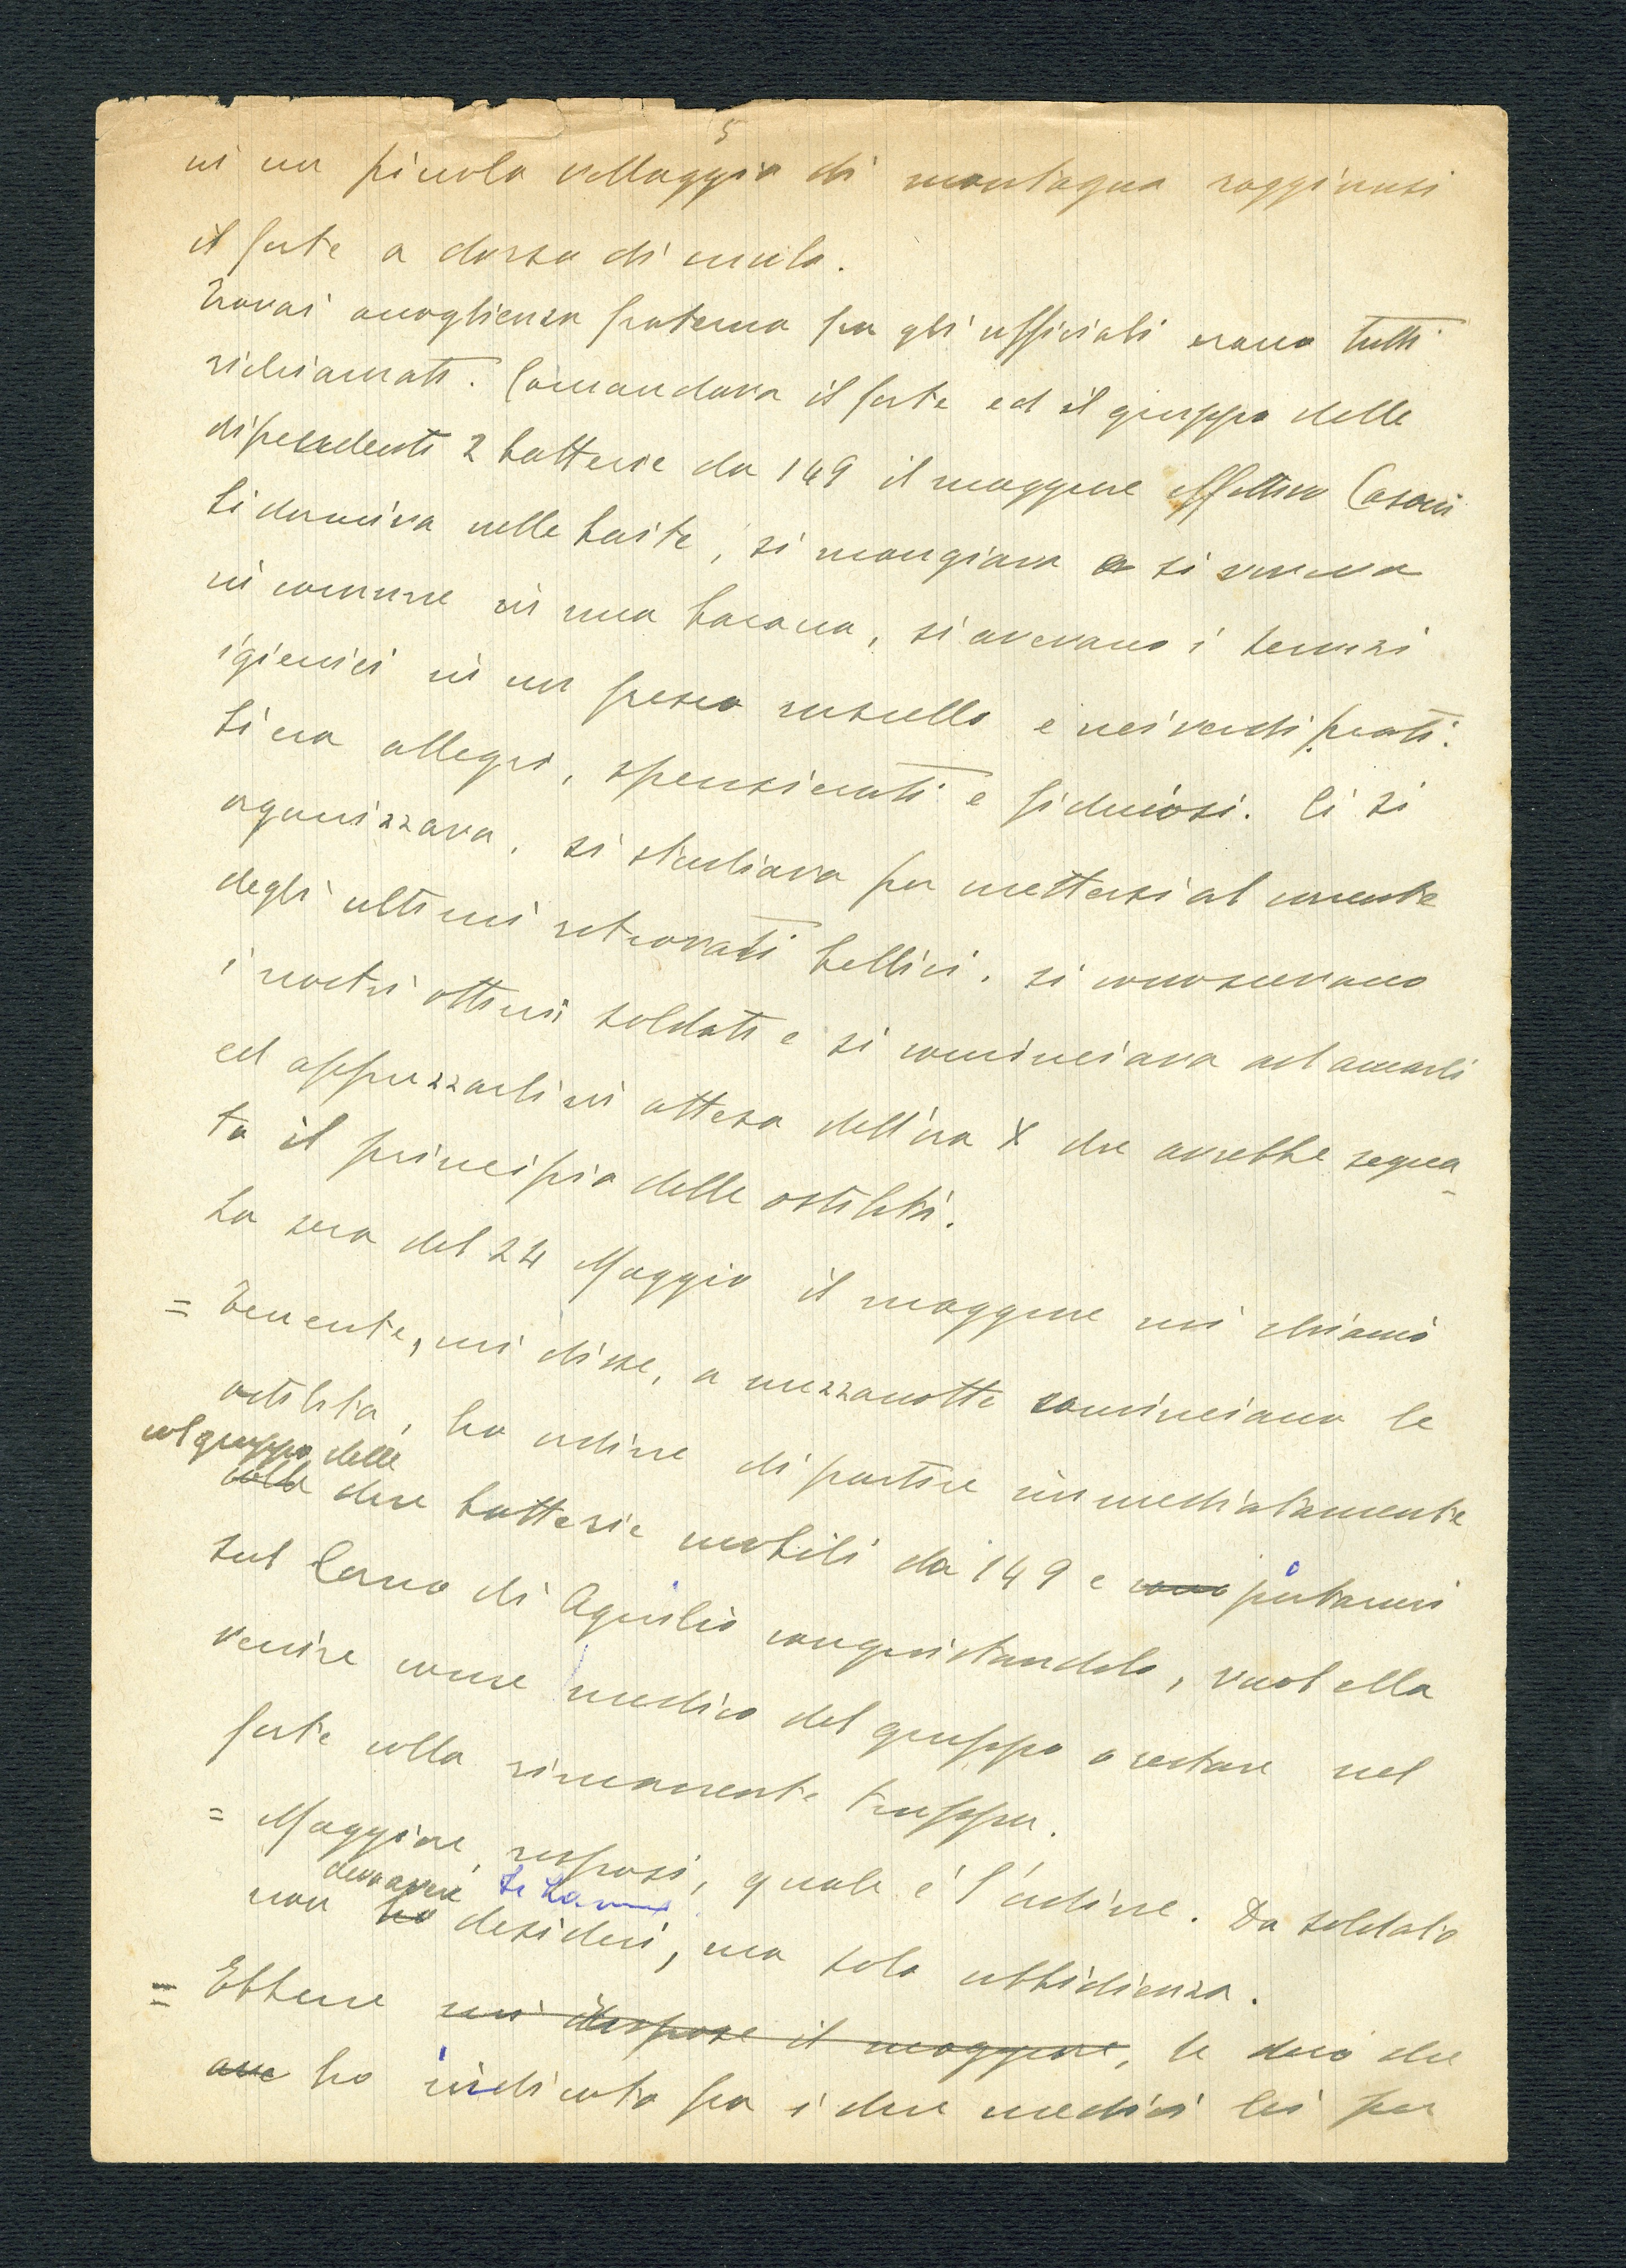 5
in un piccolo villaggio di montagna raggiunsi
il forte a dorso di mulo.
Trovai accoglienza fraterna fra gli ufficiali erano tutti
richiamati. Comandava il forte ed il gruppo delle
dipendenti 2 batterie da 149 il maggiore effettivo Casoni
Si dormiva nelle baite, si mangiava e si viveva
in comune in una baracca, si avevano i servizi
igienici in un fresco ruscello e nei verdi prati.
Si era allegri, spensierati e fiduciosi. Ci si
organizzava, si studiava per mettersi al corrente
degli ultimi ritrovati bellici, si conoscevano
i nostri ottimi soldati e si cominciava ad amarli
ed apprezzarli in attesa dell'ora X che avrebbe segna
to il principio delle ostilità.
La sera del 24 Maggio il maggiore mi chiamò
= Tenente, mi disse, a mezzanotte cominciano le
ostilità, ho ordine di partire immediatamente
col gruppo delle
colle due batterie mobili da 149 e portarmi
sul Corno di Aquilio conquistandolo, vuol ella
venire come medico del gruppo o restare nel
forte colla rimanente truppa.
= Maggiore, risposi, quale è l'ordine. Da soldato
devo avere
non ho desideri, ma solo ubbidienza.
= Ebbene mi rispose il maggiore, le dirò che
ho indicato fra i due medici lei per